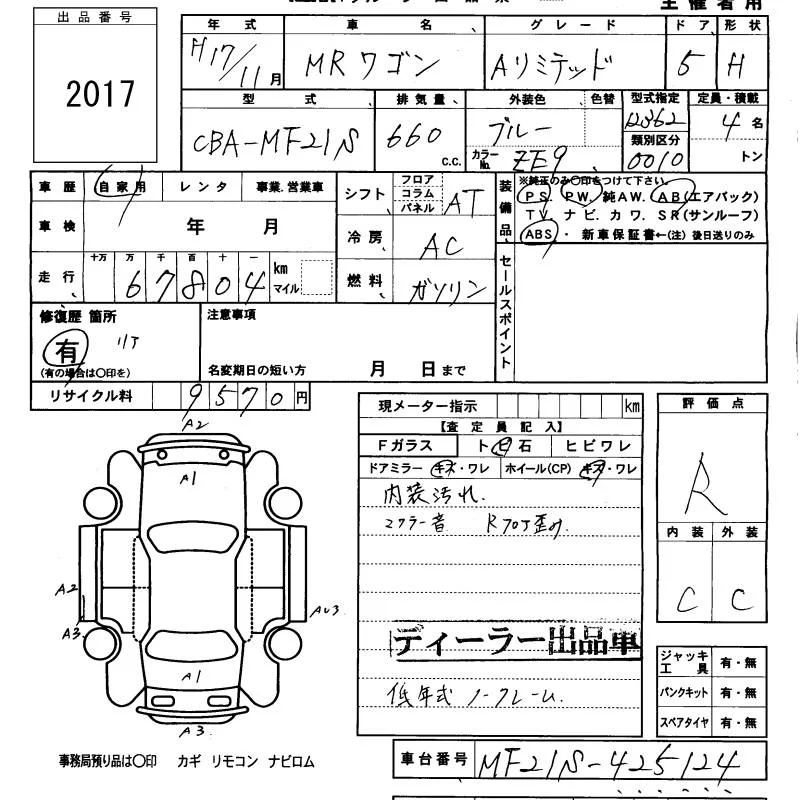 主催者用
出品番号
2017
年式 車名 グレード ドア 形状
H17/11月 MRワゴン Aリミテッド 5 H
型式 排気量 外装色 色替 型式指定 定員・積載
CBA-MF21S 660 c.c. ブルー 4名
カラーNo. ZE9 類別区分 0010 トン
車歴 自家用 レンタ 事業.営業車
車検 年 月
走行 十万 万 千 百 十 一
67804 km マイル
シフト フロア コラム パネル AT
冷房 AC
燃料 ガソリン
装備品
※純正のみ〇印をつけて下さい。
PS. PW. 純AW. AB(エアバック)
TV. ナビ. カワ. SR(サンルーフ)
ABS ・ 新車保証書←(注) 後日送りのみ
セールスポイント
修復歴 箇所
有
(有の場合は〇印を)
注意事項
名変期日の短い方 月 日まで
リサイクル料 9570円
現メーター指示 km
【査定員記入】
Fガラス トビ石 ヒビワレ
ドアミラー キズ・ワレ ホイール(CP) キズ・ワレ
内装汚れ.
マフラー音 Rフロア歪み.
ディーラー出品車
低年式 ノークレーム.
評価点
R
内装 外装
C C
ジャッキ工具 有・無
パンクキット 有・無
スペアタイヤ 有・無
A2
A1
A2
A3
AU3
A1
A3
事務局預り品は〇印 カギ リモコン ナビロム
車台番号 MF21S-425124